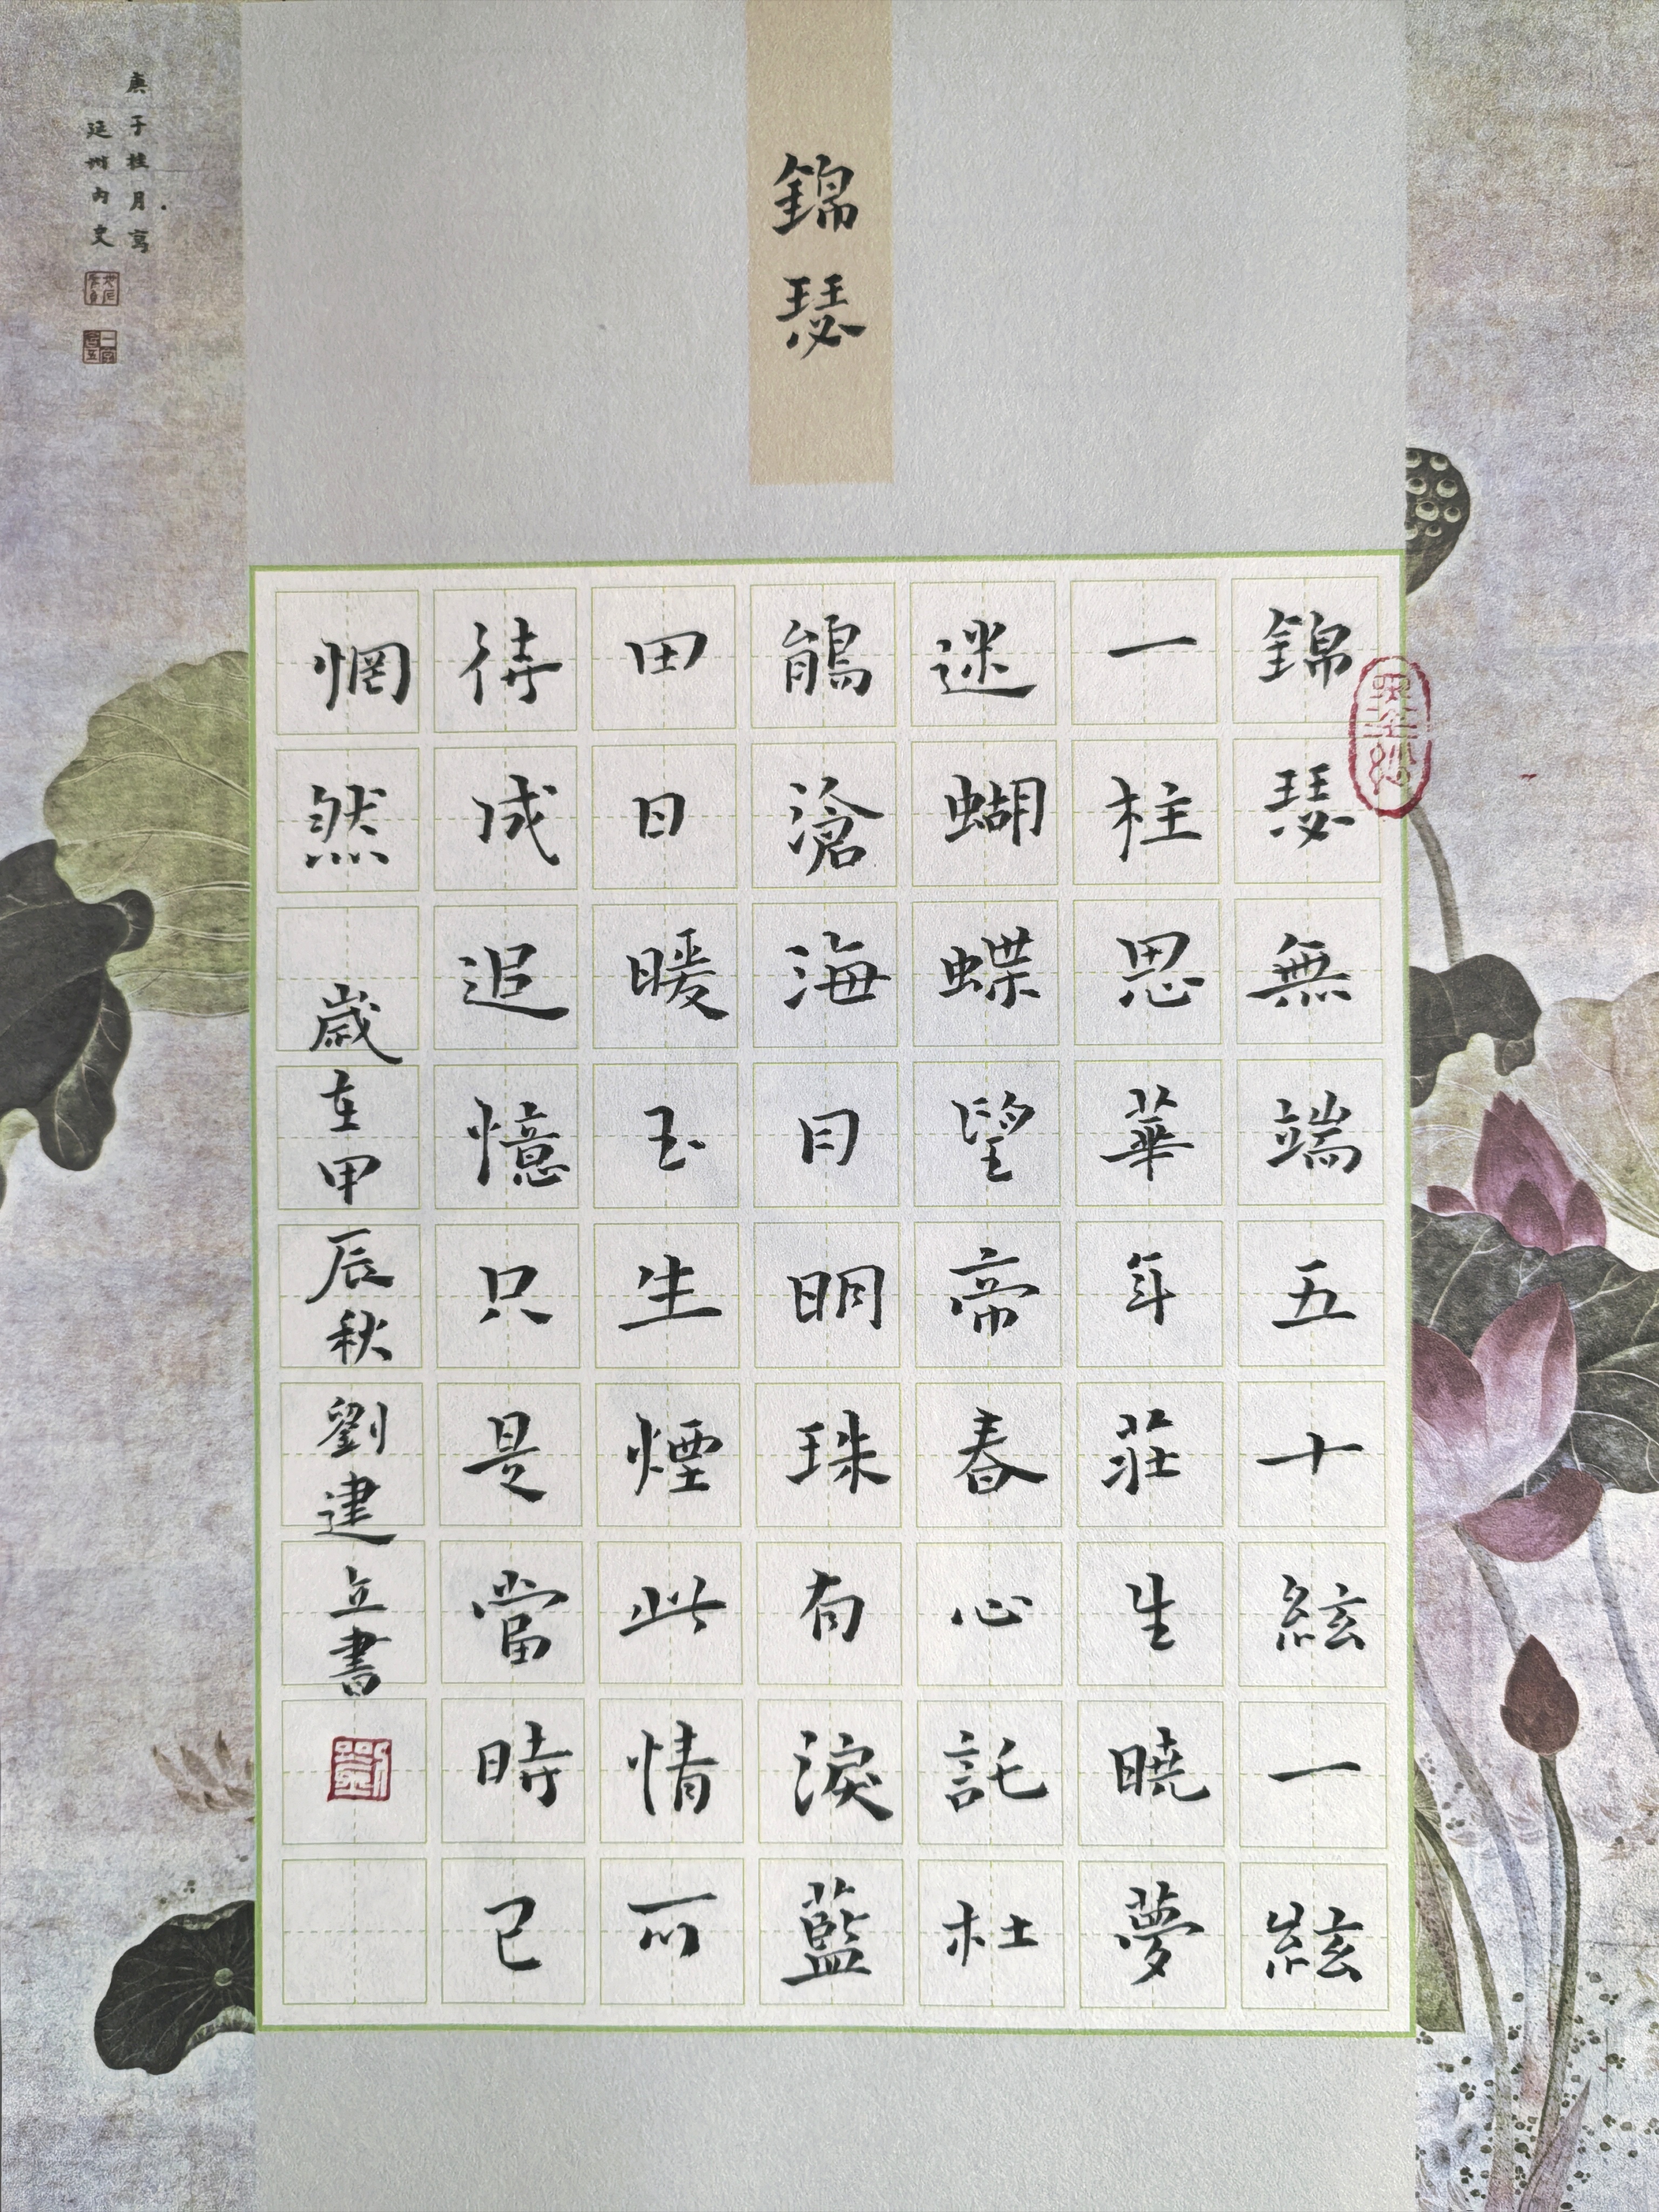 錦瑟
錦瑟無端五十絃一絃
一柱思華年莊生曉夢
迷蝴蝶望帝春心託杜
鵑滄海月明珠有淚藍
田日暖玉生煙此情可
待成追憶只是當時已
惘然 歲在甲辰秋劉建立書
庚子桂月寫
延州内史